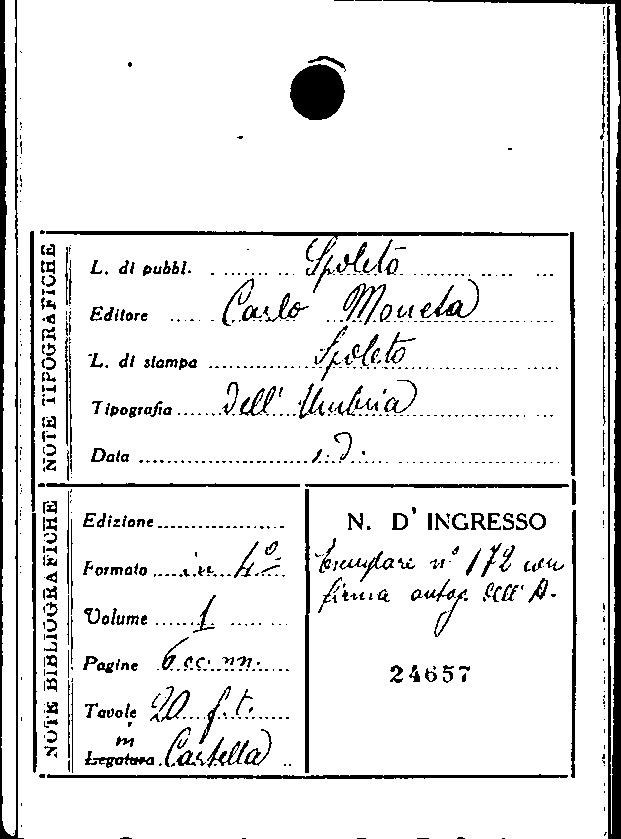 NOTE TIPOGRAFICHE
L. di pubbl. Spoleto
Editore Carlo Moneta
L. di stampa Spoleto
Tipografia dell' Umbria
Data s.d.
NOTE BIBLIOGRAFICHE
Edizione
Formato in 4º
Volume 1
Pagine 6 cc. nn.
Tavole 20 f.t.
in
Legatura Cartella
N. D' INGRESSO
Esemplare n° 172 con
firma autog. dell' A.
24657